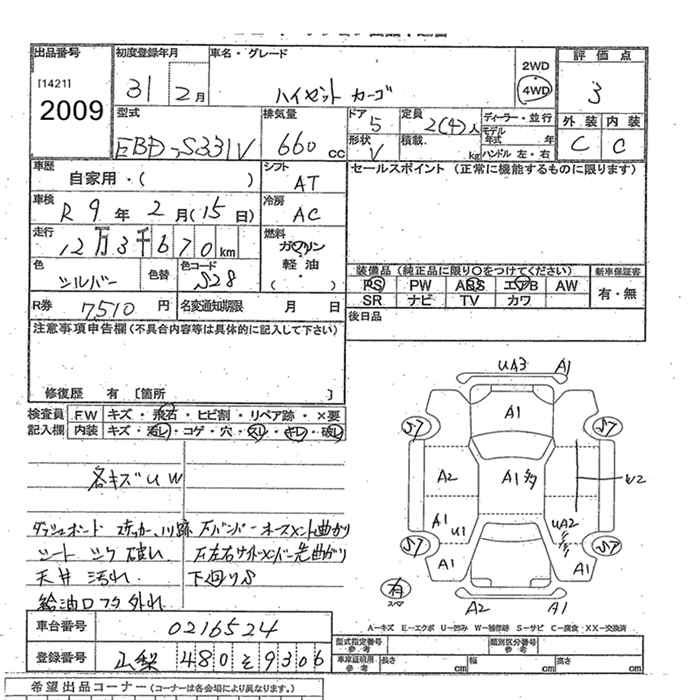 出品番号 初度登録年月 車名・グレード 評価点
[1421] 31 2月 ハイゼット カーゴ 2WD 4WD 3
2009
型式 排気量 ドア 定員 ディーラー・並行 外装 内装
EBD-S331V 660cc 5 2(4)人 モデル年式 年 C C
形状 V 積載 kg ハンドル 左・右
車歴 シフト セールスポイント (正常に機能するものに限ります)
自家用・( ) AT
車検 冷房
R 9年 2月(15日) AC
走行 燃料
12万3千670km ガソリン・軽油・( )
色 色替 色コード 装備品 (純正品に限り○をつけてください) 新車保証書
シルバー S28 PS PW ABS エアB AW 有・無
SR ナビ TV カワ
R券 7510円 名変通知期限 月 日 後日品
注意事項申告欄(不具合内容等は具体的に記入して下さい)
修復歴 有 [箇所 ]
検査員 FW キズ・飛石・ヒビ割・リペア跡・×要
記入欄 内装 キズ・汚レ・コゲ・穴・スレ・キレ・破レ
各キズUW
ダッシュボード ステッカー
シート 破れ
天井 汚れ 下回りS
給油口フタ外れ
UA3 A1
A1
S7 S7
A2 A1多 W2
A1 U1 UA2
S7 S7
A1 A1
有
スペア
A2 A1
A-キズ E-エクボ U-凹み W-補修跡 S-サビ C-腐食 XX-交換済
車台番号 0216524
型式指定番号 参考 類別区分番号 参考
登録番号 山梨 480 そ 9306
車庫証明用 参考 長さ cm 幅 cm 高さ cm
希望出品コーナー(コーナーは各会場により異なります。)